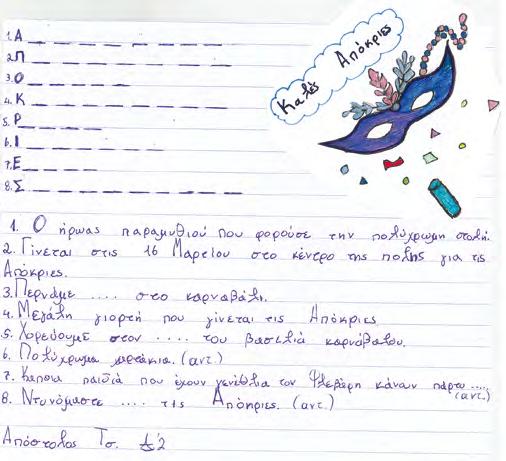 1. Α _ _ _ _ _ _ _ _
2. Π _ _ _ _ _ _ _ _
3. Ο _ _ _ _ _
4. Κ _ _ _ _ _ _ _ _
5. Ρ _ _ _ _
6. Ι _ _ _ _ _ _ _
7. Ε _ _ _ _
8. Σ _ _ _ _ _ _ _ _ _
Καλές Απόκριες
1. Ο ήρωας παραμυθιού που φορούσε την πολύχρωμη στολή.
2. Γίνεται στις 16 Μαρτίου στο κέντρο της πόλης για τις
Απόκριες.
3. Περνάμε .... στο καρναβάλι.
4. Μεγάλη γιορτή που γίνεται τις Απόκριες
5. Χορεύουμε στον .... του βασιλιά καρνάβαλου.
6. Πολύχρωμα χαρτάκια. (αντ.)
7. Κάποια παιδιά που έχουν γενέθλια τον Φλεβάρη κάνουν πάρτυ .....
(αντ.)
8. Ντυνόμαστε .... τις Απόκριες. (αντ.)
Απόστολος Τσ. Δ2